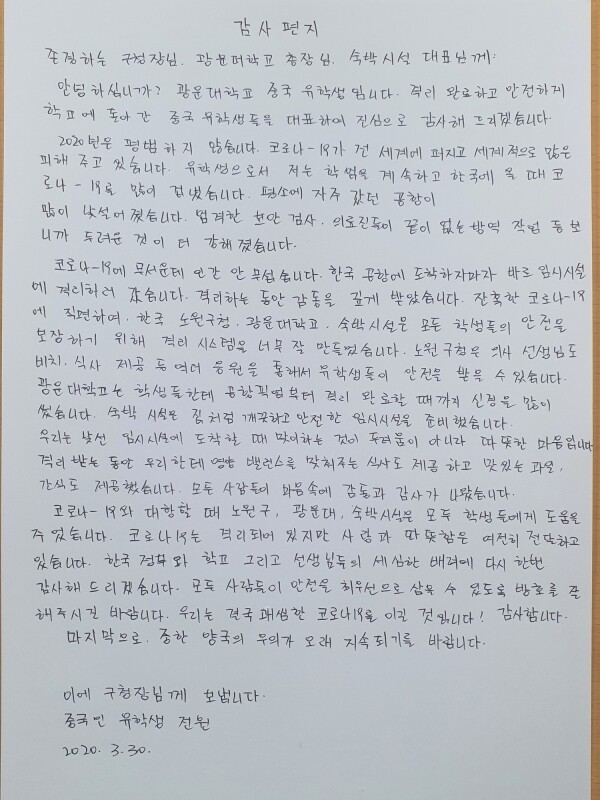 감사 편지
존경하는 구청장님, 광운대학교 총장님, 숙박시설 대표님께:
안녕하십니까? 광운대학교 중국 유학생입니다. 격리 완료하고 안전하게
학교에 돌아간 중국 유학생들을 대표하여 진심으로 감사해 드리겠습니다.
2020년은 평범하지 않습니다. 코로나-19가 전 세계에 퍼지고 세계적으로 많은
피해 주고 있습니다. 유학생으로서 저는 학업을 계속하고 한국에 올 때 코
로나-19로 많이 겁났습니다. 평소에 자주 갔던 공항이
많이 낯설어졌습니다. 엄격한 보안 검사, 의료진들이 끝이 없는 방역 작업 등 보
니까 두려운 것이 더 강해졌습니다.
코로나-19에 무서운데 인간 안 무섭습니다. 한국 공항에 도착하자마자 바로 임시시설
에 격리하러 갔습니다. 격리하는 동안 감동을 깊게 받았습니다. 잔혹한 코로나-19
에 직면하여, 한국 노원구청, 광운대학교, 숙박시설은 모든 학생들의 안전을
보장하기 위해 격리 시스템을 너무 잘 만들었습니다. 노원구청은 의사 선생님도
비치, 식사 제공 등 여러 응원을 통해서 유학생들이 안전을 받을 수 있습니다.
광운대학교는 학생들한테 공항픽업부터 격리 완료할 때까지 신경을 많이
썼습니다. 숙박 시설은 집처럼 깨끗하고 안전한 임시시설을 준비했습니다.
우리는 낯선 임시시설에 도착할 때 맞이하는 것이 두려움이 아니라 따뜻한 마음입니다.
격리 받는 동안 우리한테 영양 밸런스를 맞춰주는 식사도 제공하고 맛있는 과일,
간식도 제공했습니다. 모든 사람들이 마음속에 감동과 감사가 나왔습니다.
코로나-19와 대항할 때 노원구, 광운대, 숙박시설은 모두 학생들에게 도움을
주었습니다. 코로나19는 격리되어 있지만 사랑과 따뜻함은 여전히 전달하고
있습니다. 한국 정부와 학교 그리고 선생님들의 세심한 배려에 다시 한번
감사해 드리겠습니다. 모든 사람들이 안전을 최우선으로 삼을 수 있도록 방호를 잘
해주시길 바랍니다. 우리는 결국 괘씸한 코로나19를 이길 것입니다! 감사합니다.
마지막으로, 중한 양국의 우의가 오래 지속되기를 바랍니다.
이에 구청장님께 보냅니다.
중국인 유학생 전원
2020. 3. 30.